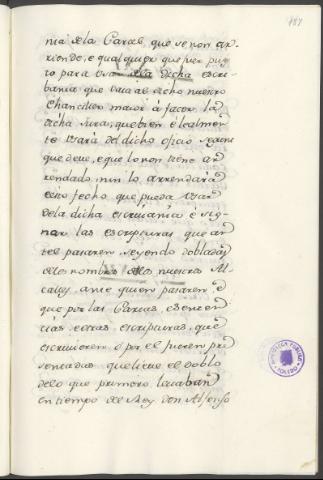 187
nia de la Carcel, que se non ar-
riende, e qualquier que fuer pues
to para usar de la dicha escri-
bania que vaia al dicho nuestro
Chanciller maior á facer la
dicha Jura, que bien é lealmen-
te usará del dicho oficio segun
que deve, e que lo non tiene ar
rendado nin lo arrendará
esto fecho que pueda usar
de la dicha escriuania e sig-
nar las escripturas que an-
te el pasaren seyendo dobladas
de los nombres de los nuestros Al-
calles, ante quien pasaren é
que por las Cartas, e Senten-
cias, e otras escripturas, que
escriuieren, o por el fueren pre
sentadas que lieue el doblo
de lo que primero levaban
en tiempo del Rey don Alfonso
BIBLIOTECA PUBLICA
TOLEDO